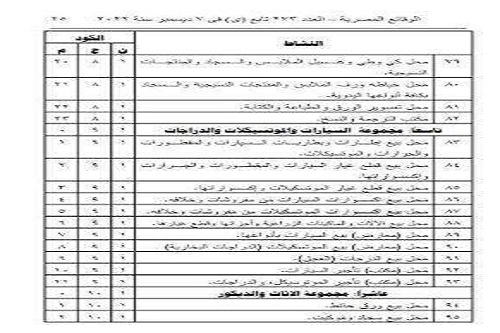 الوقائع المصرية – العدد ٢٧٣ تابع (ى) فى ٧ ديسمبر سنة ٢٠٢٢ ٢٥
النشاط الكود
ن ج م
٧٩ محل كي وطي وغسيل الملابس والسجاد والمنتجات النسيجية. ١ ٨ ٢٠
٨٠ محل خياطة ورف الملابس والمنتجات النسيجية والسجاد بكافة أنواعها اليدوية. ١ ٨ ٢١
٨١ محل تصوير الورق والطباعة والكتابة. ١ ٨ ٢٢
٨٢ مكتب الترجمة والنسخ. ١ ٨ ٢٣
تاسعا: مجموعة السيارات والموتوسيكلات والدراجات ١ ٩ -
٨٣ محل بيع إطارات وبطاريات السيارات والمقطورات والجرارات والموتوسيكلات. ١ ٩ ١
٨٤ محل بيع قطع غيار السيارات والمقطورات والجرارات وإكسسواراتها. ١ ٩ ٢
٨٥ محل بيع قطع غيار الموتوسيكلات وإكسسواراتها. ١ ٩ ٣
٨٦ محل بيع إكسسوارات السيارات من مفروشات وخلافه. ١ ٩ ٤
٨٧ محل بيع إكسسوارات الموتوسيكلات من مفروشات وخلافه. ١ ٩ ٥
٨٨ محل بيع الآلات والماكينات الزراعية وأجزائها وقطع غيارها. ١ ٩ ٦
٨٩ محل (معارض) بيع السيارات بأنواعها. ١ ٩ ٧
٩٠ محل (معارض) بيع الموتوسيكلات (الدراجات البخارية) ١ ٩ ٨
٩١ محل بيع الدراجات (العجل). ١ ٩ ٩
٩٢ محل (مكتب) تأجير السيارات. ١ ٩ ١٠
٩٣ محل (مكتب) تأجير الموتوسيكل والدراجات. ١ ٩
عاشرا: مجموعة الأثاث والديكور ١ ١٠ -
٩٤ محل بيع ورق حائط. ١ ١٠ ١
٩٥ محل بيع سجاد وموكيت. ١ ١٠ ٢